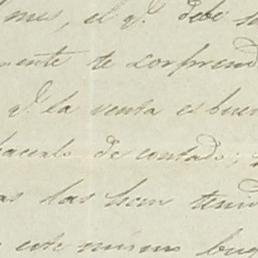 mes, el q.e debe
mente te sorprend
q.e la venta es buen
hacerlo de contado;
as las hem tenid
este mismo buq